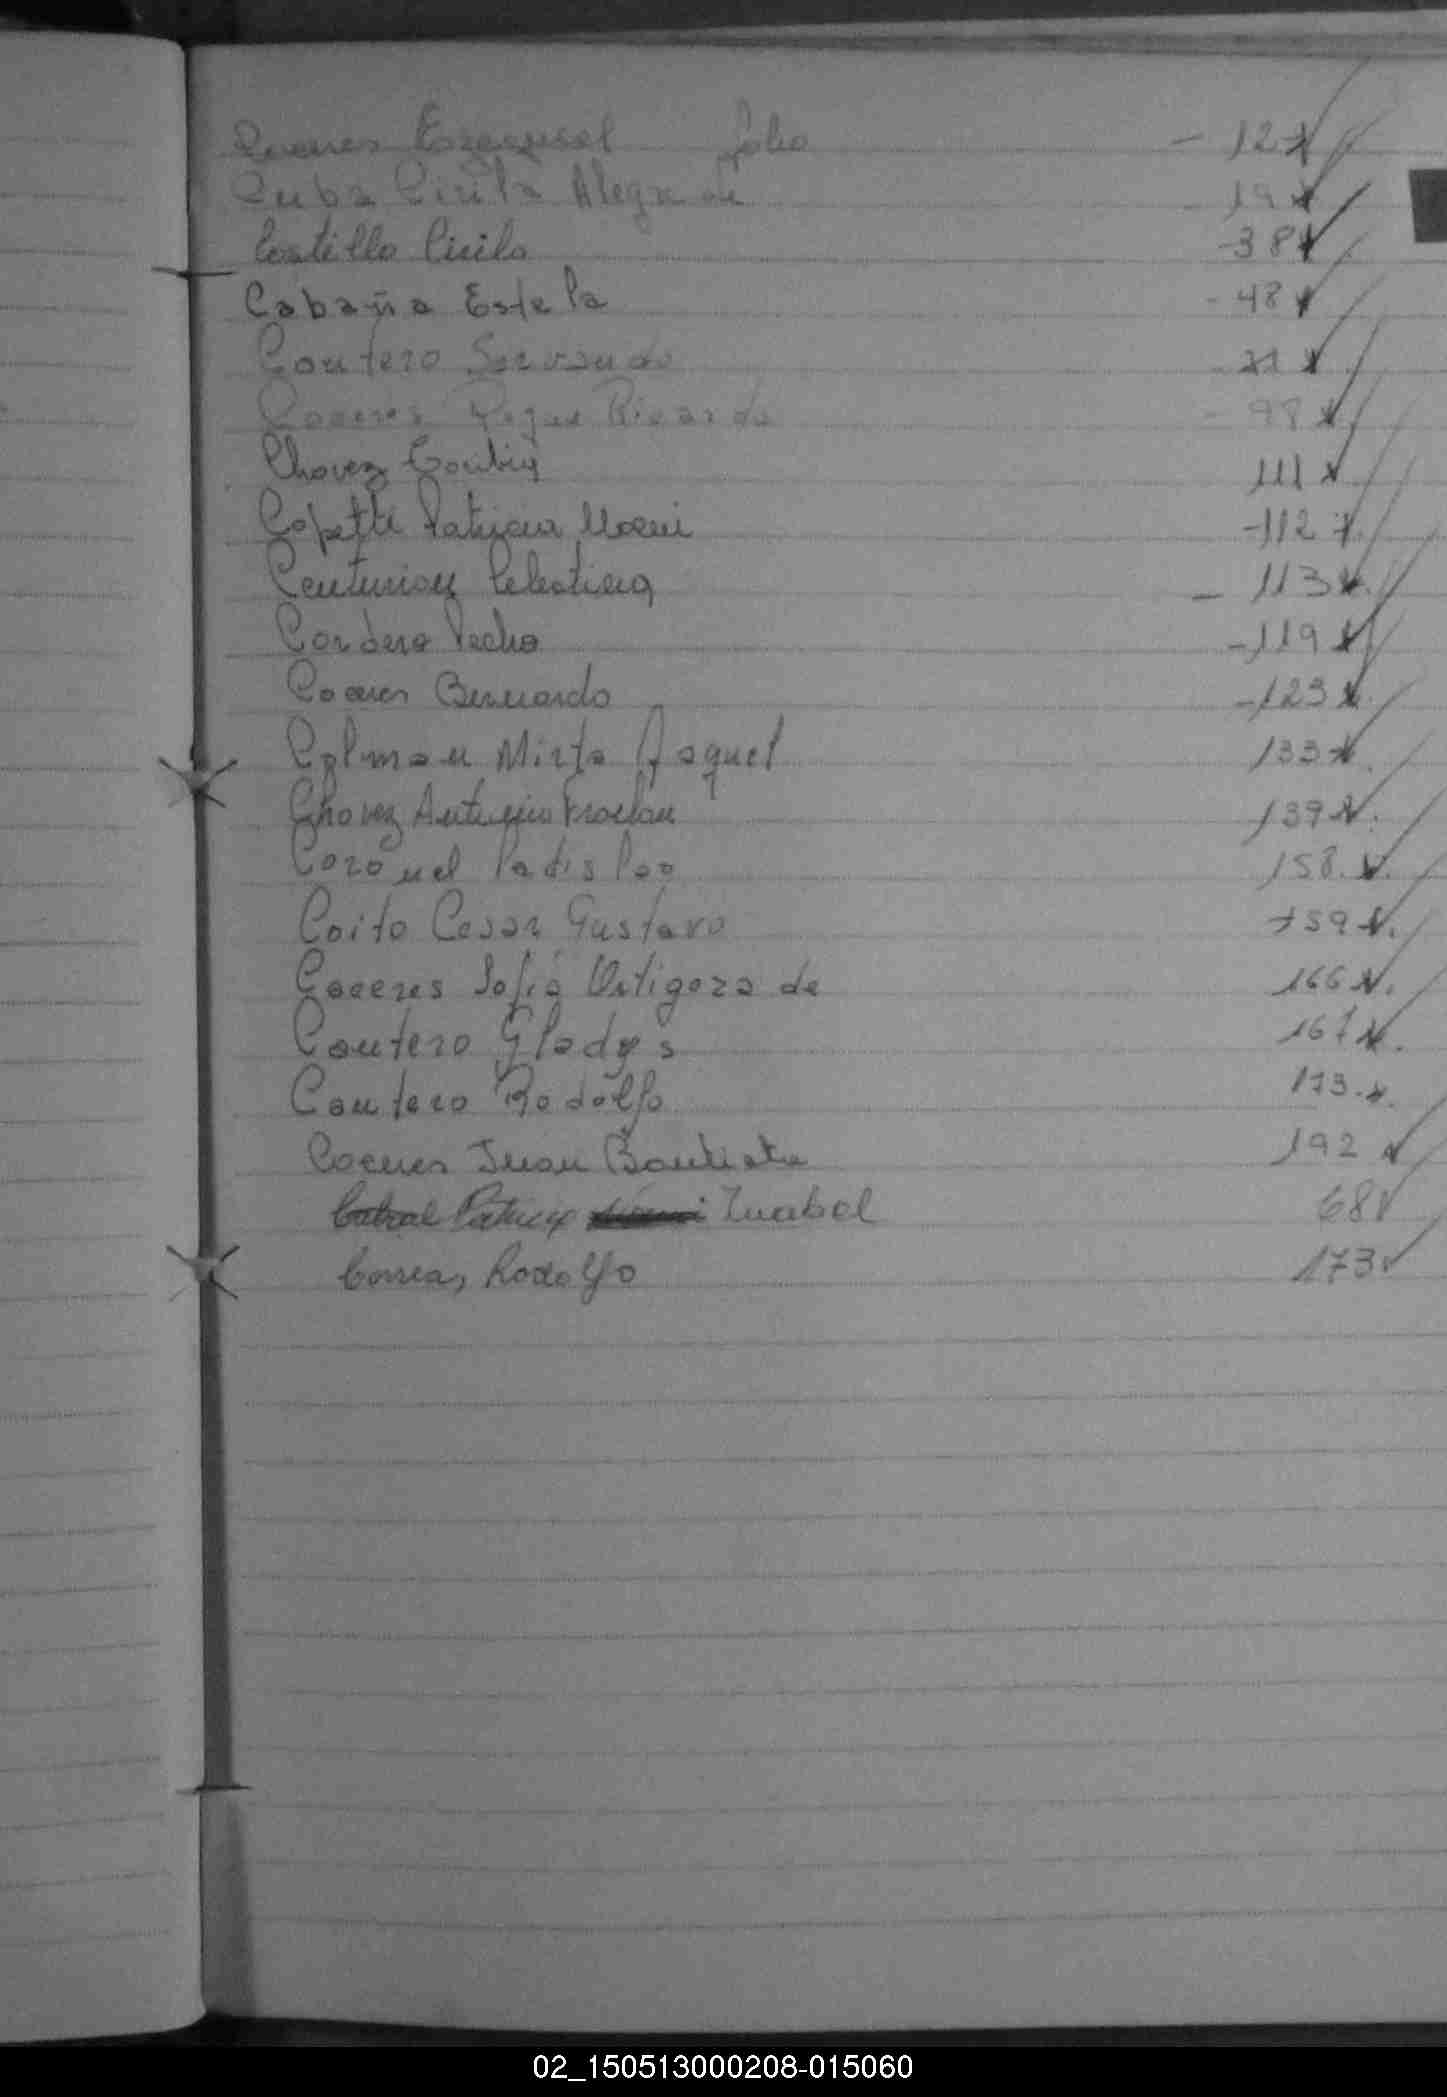 Caceres Ezequiel folio - 12
Cuba Cirila Alegre de - 19
Costillo Cirilo - 38
Cabaña Estela - 48
Cantero Servando -
Caceres Roque Ricardo - 98
Chavez 111
Copetti Patricia Noemi - 112
Centurion Celestina - 113
Cordero Pedro - 119
Caceres Bernardo - 123
Colman Mirta Raquel 133
Chavez Antonio Froelan 139
Coronel Ladislao 158
Coito Cesar Gustavo 159
Caceres Sofia Ortigoza de 166
Cantero Gladys 167
Cantero Rodolfo 173
Caceres Juan Bautista 192
Cabral 68
Correa, Rodolfo 173
02_150513000208-015060